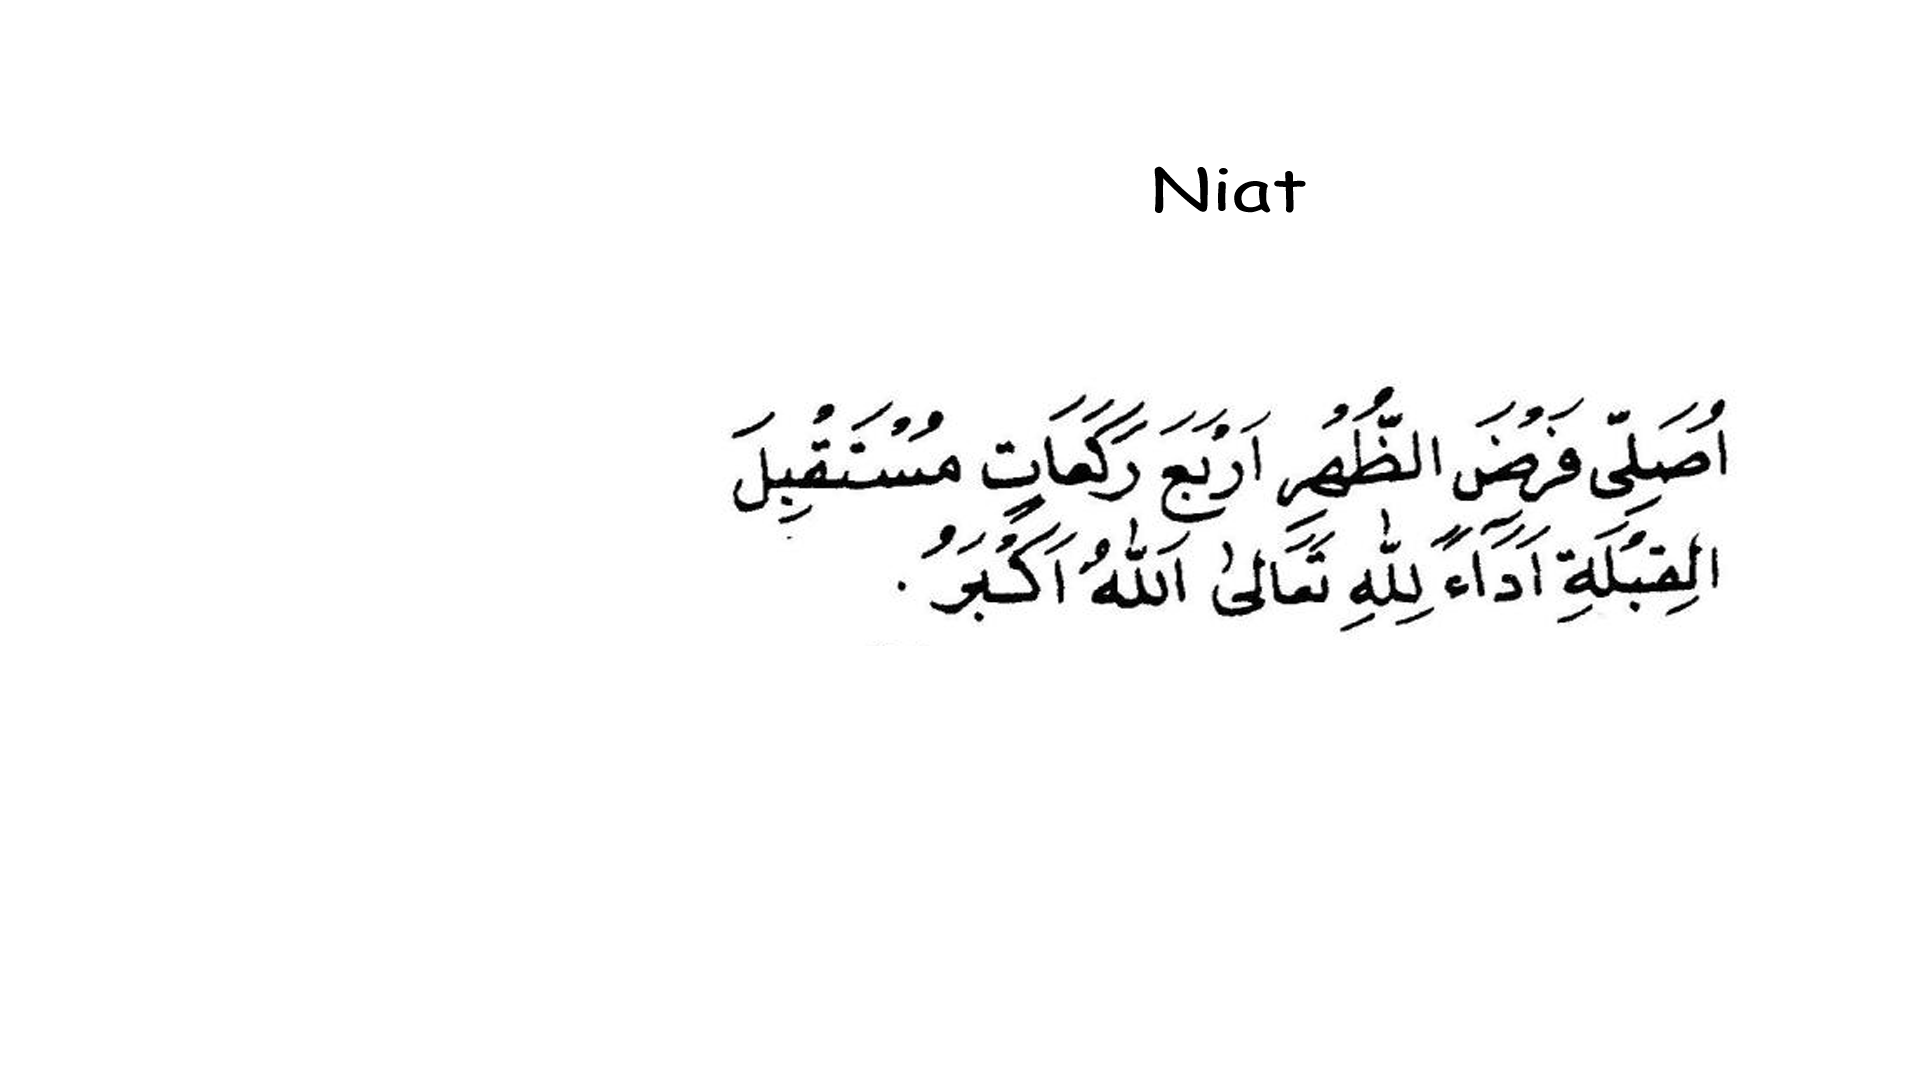 Niat
اُصَلِّى فَرْضَ الظُّهْرِ اَرْبَعَ رَكَعَاتٍ مُسْتَقْبِلَ
الْقِبْلَةِ اَدَاءً لِلّٰهِ تَعَالٰى اَللّٰهُ اَكْبَرُ .